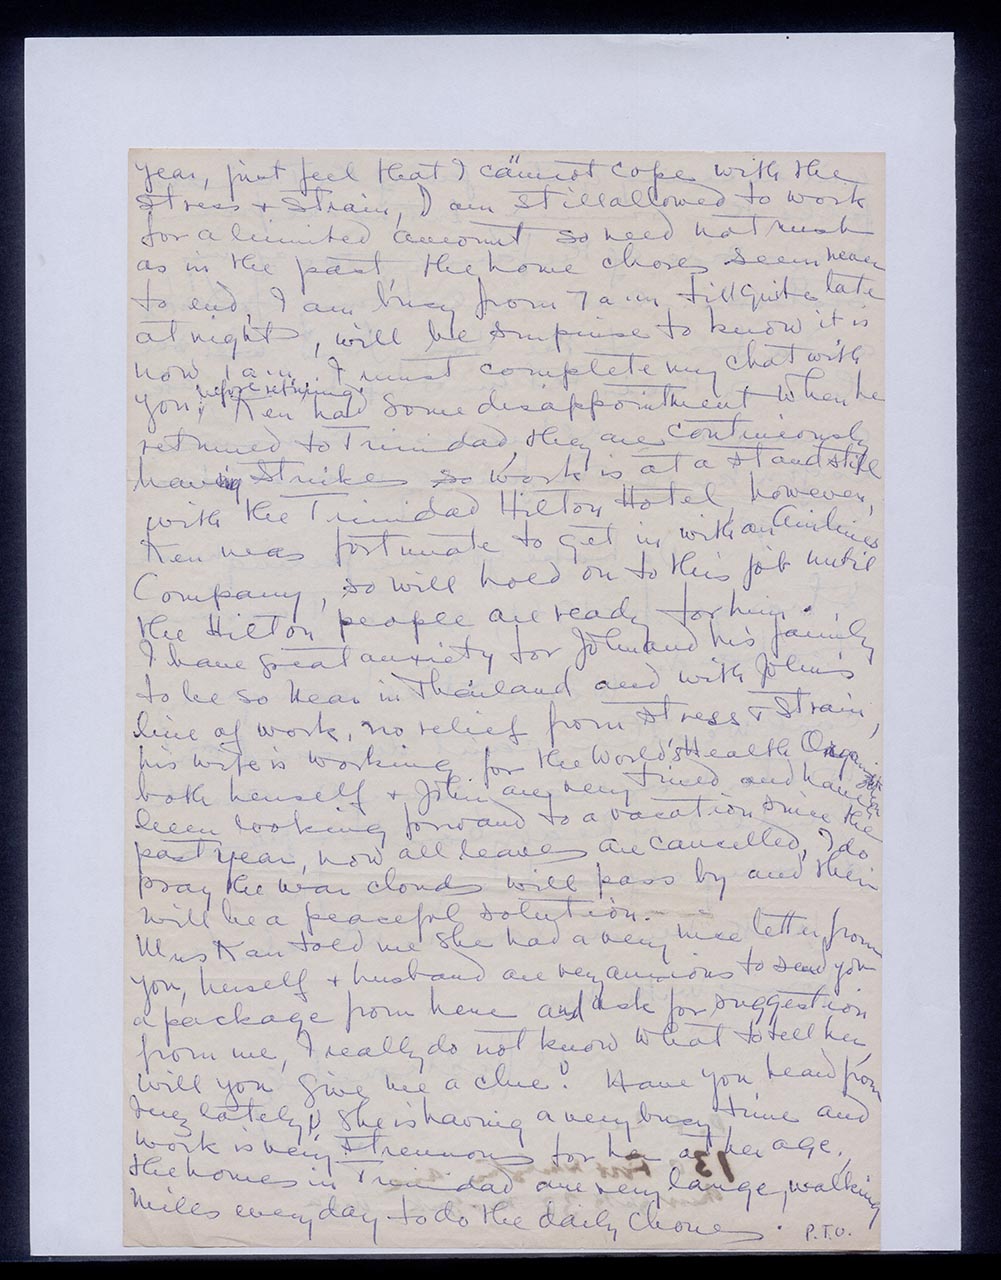 year, just feel that I cannot cope with the
stress & strain, I am still allowed to work
for a limited amount so need not rush
as in the past the home chores seem never
to end, I am busy from 7 a.m. till quite late
at night, will be surprise to know it is
now 1 a.m. I must complete my chat with
you, before retiring. Ken had some disappointment when he
returned to Trinidad, they are continuously
having strikes so work is at a stand still
with the Trinidad Hilton Hotel, however,
Ken was fortunate to get in with an Airlines
Company, so will hold on to this job until
the Hilton people are ready for him.
I have great anxiety for John and his family
to be so near in Thailand and with John's
line of work, no relief from stress & strain,
his wife is working for the World's Health Organization
both herself & John are very tired and have
been looking forward to a vacation since the
past year, now all leaves are cancelled, I do
pray the war clouds will pass by and their
will be a peaceful solution.
Mrs Kan told me she had a very nice letter from
you, herself & husband are very anxious to send you
a package from here and ask for suggestion
from me, I really do not know what to tell her,
will you give me a clue? Have you heard from
Inez lately, she is having a very busy time and
work is very strennous for her at her age,
the homes in Trinidad are very large, walking
miles every day to do the daily chores.
P.T.O.
13